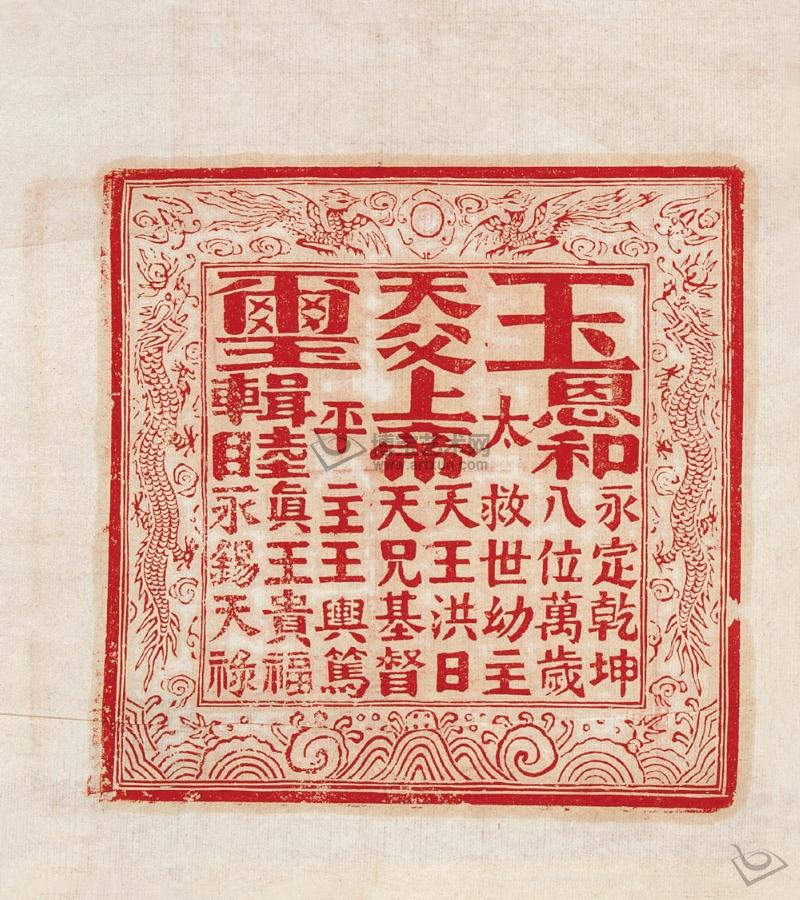 玉
恩和
永定乾坤
八位萬歲
太
救世幼主
天王洪日
天父上帝
天兄基督
平
主王輿篤
璽
輯睦
眞王貴福
永錫天祿
博宝艺术网
www.artxun.com